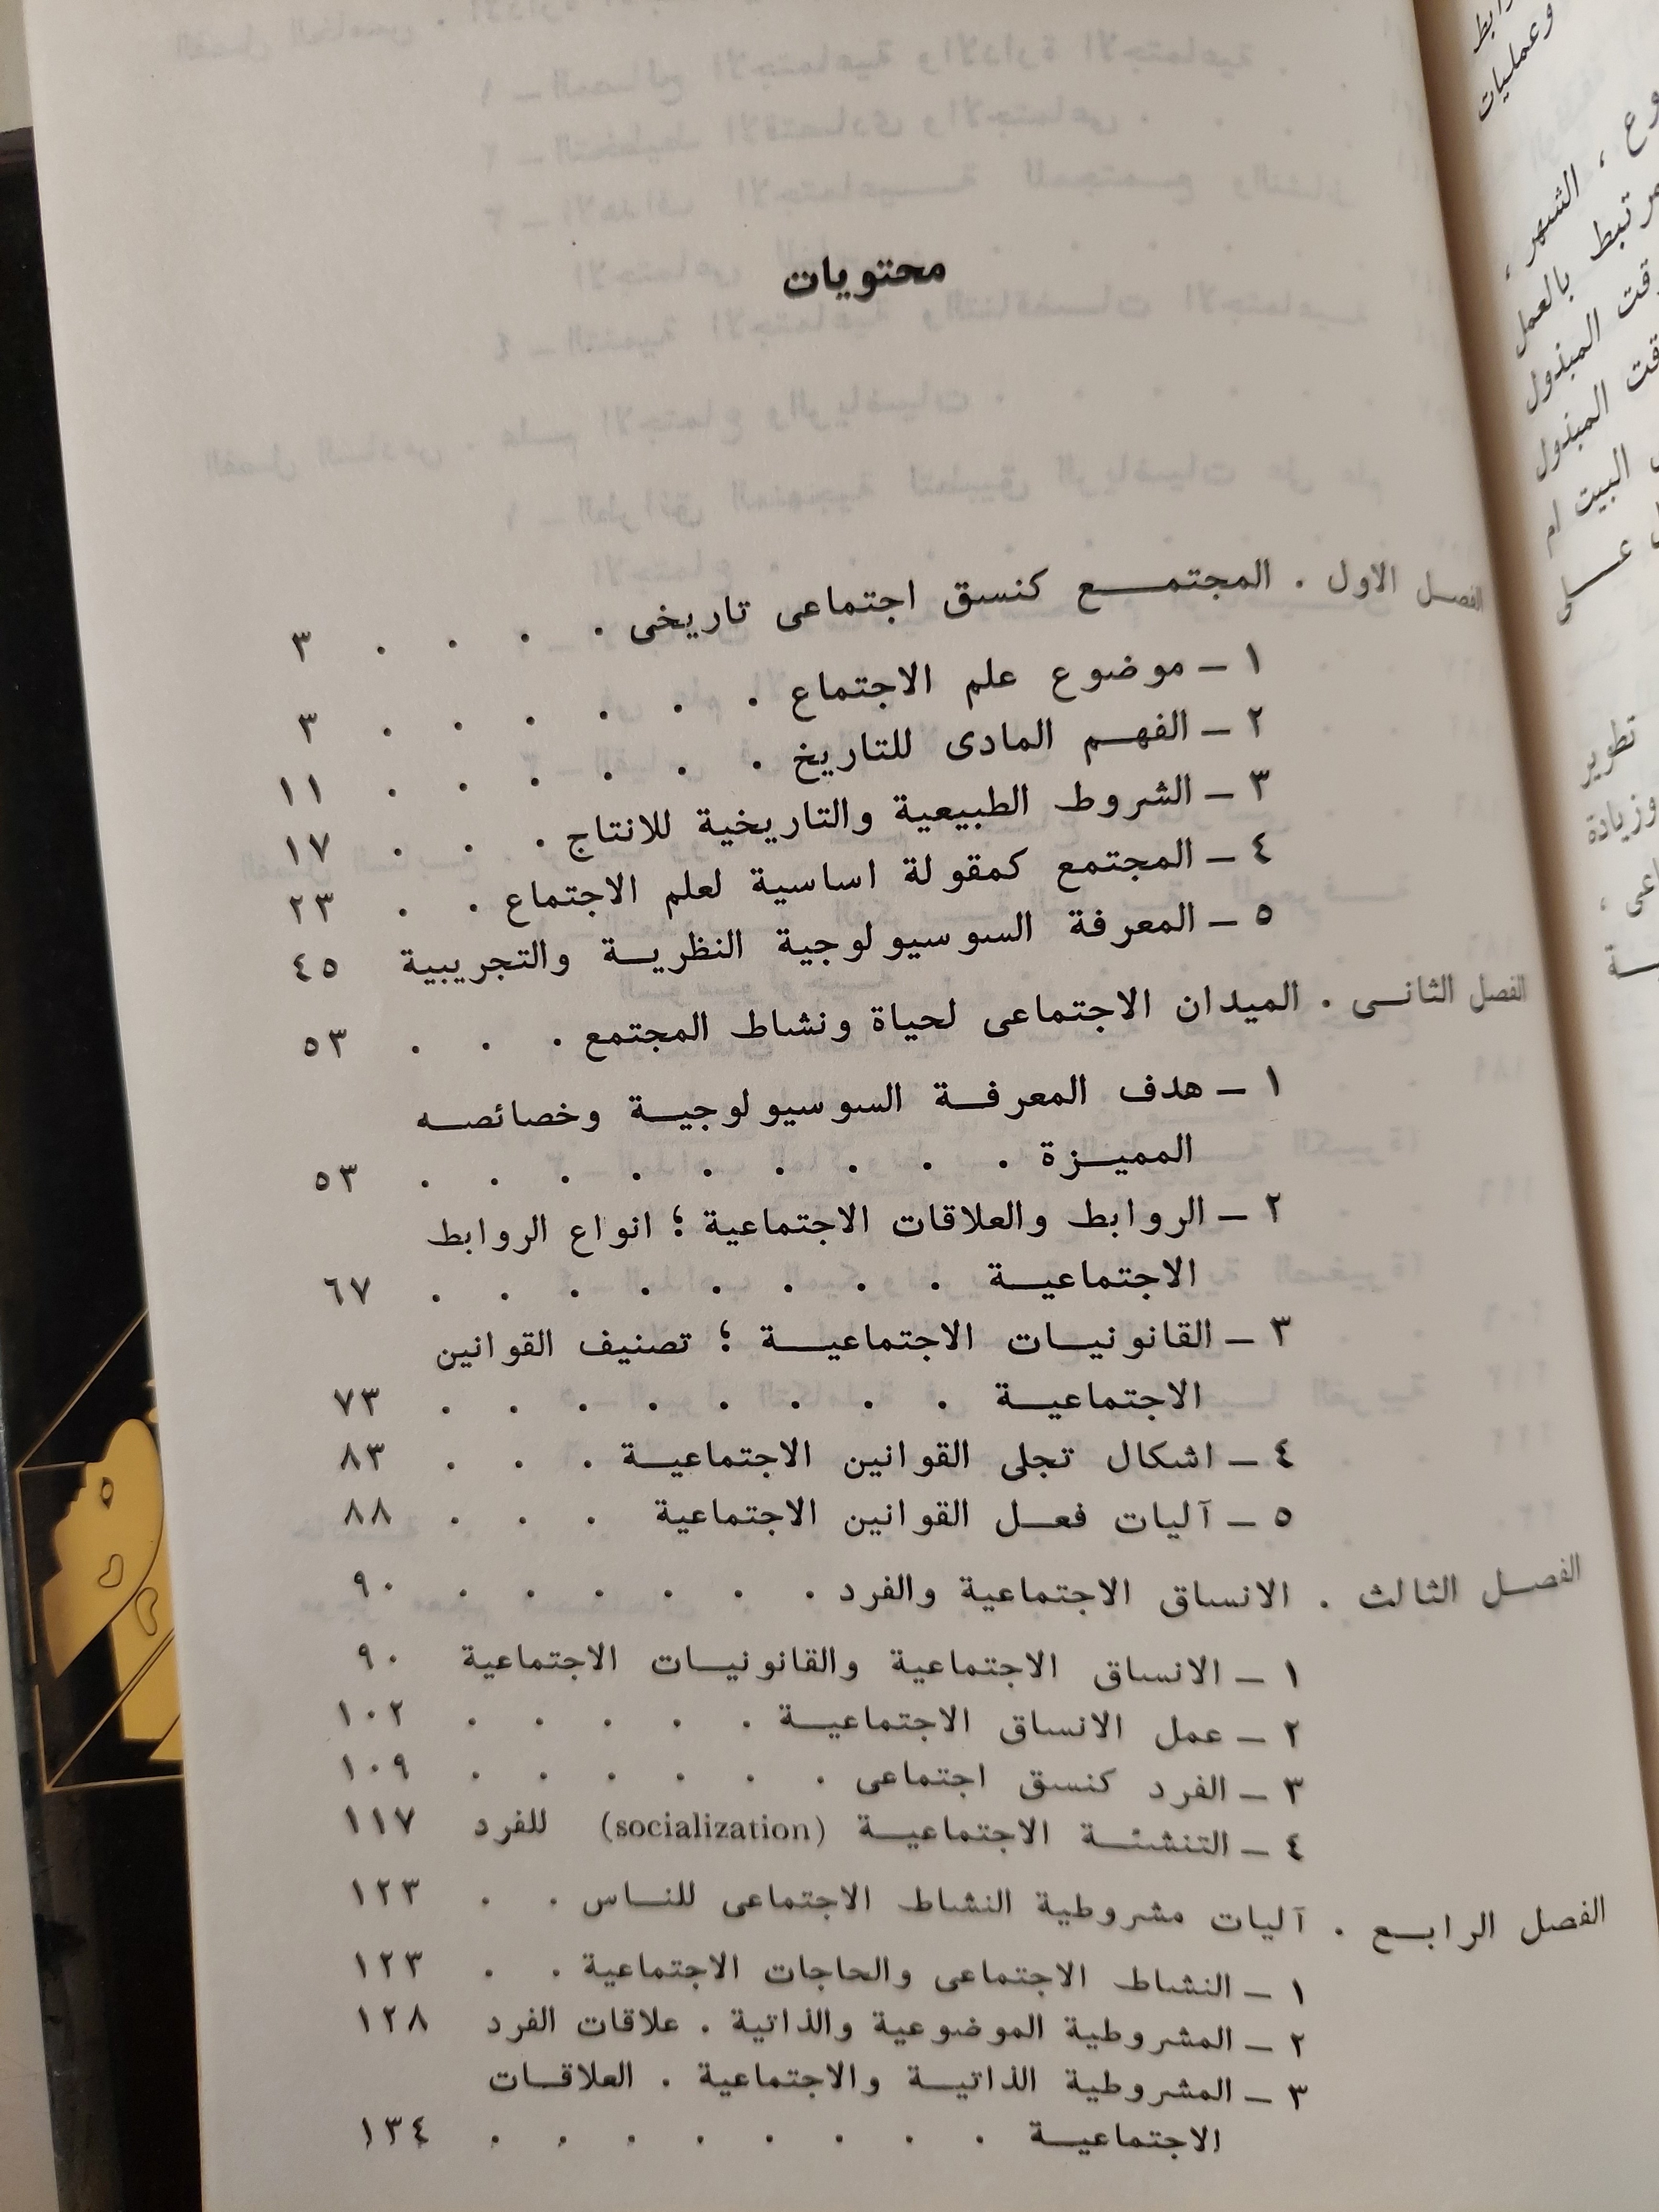 محتويات
الفصـل الاول . المجتمـــع كنسق اجتماعى تاريخى . . . . ٣
١ ـ موضوع علم الاجتماع . . . . . . ٣
٢ ـ الفهـم المادى للتاريخ . . . . . . ١١
٣ ـ الشروط الطبيعية والتاريخية للانتاج . . . ١٧
٤ ـ المجتمع كمقولة اساسية لعلم الاجتماع . . ٢٣
٥ ـ المعرفة السوسيولوجية النظريـة والتجريبية ٤٥
الفصل الثانـى . الميدان الاجتماعى لحياة ونشاط المجتمع . . . ٥٣
١ ـ هدف المعرفـة السوسيولوجيـة وخصائصـه
المميـزة . . . . . . . . . ٥٣
٢ ـ الروابط والعلاقات الاجتماعية ؛ انواع الروابط
الاجتماعيـة . . . . . . . . ٦٧
٣ ـ القانونيـات الاجتماعيـة ؛ تصنيف القوانين
الاجتماعيـة . . . . . . . . ٧٣
٤ ـ اشكال تجلى القوانين الاجتماعيـة . . . ٨٣
٥ ـ آليات فعـل القوانين الاجتماعية . . . ٨٨
الفصـل الثالث . الانساق الاجتماعية والفرد . . . . . . ٩٠
١ ـ الانساق الاجتماعية والقانونيـات الاجتماعية ٩٠
٢ ـ عمل الانساق الاجتماعيـة . . . . . ١٠٢
٣ ـ الفرد كنسق اجتماعى . . . . . . ١٠٩
٤ ـ التنشئـة الاجتماعيـة (socialization) للفرد ١١٧
الفصل الرابـع . آليات مشروطية النشاط الاجتماعى للنـاس . . ١٢٣
١ ـ النشاط الاجتماعى والحاجات الاجتماعية . . ١٢٣
٢ ـ المشروطية الموضوعية والذاتية . علاقات الفرد ١٢٨
٣ ـ المشروطية الذاتيـة والاجتماعية . العلاقـات
الاجتماعيـة . . . . . . . . ١٣٤
وعمليات
الشهر ،
مرتبط بالعمل
المبذول
المبذول
البيت ام
عـــلى
تطوير
وزيادة